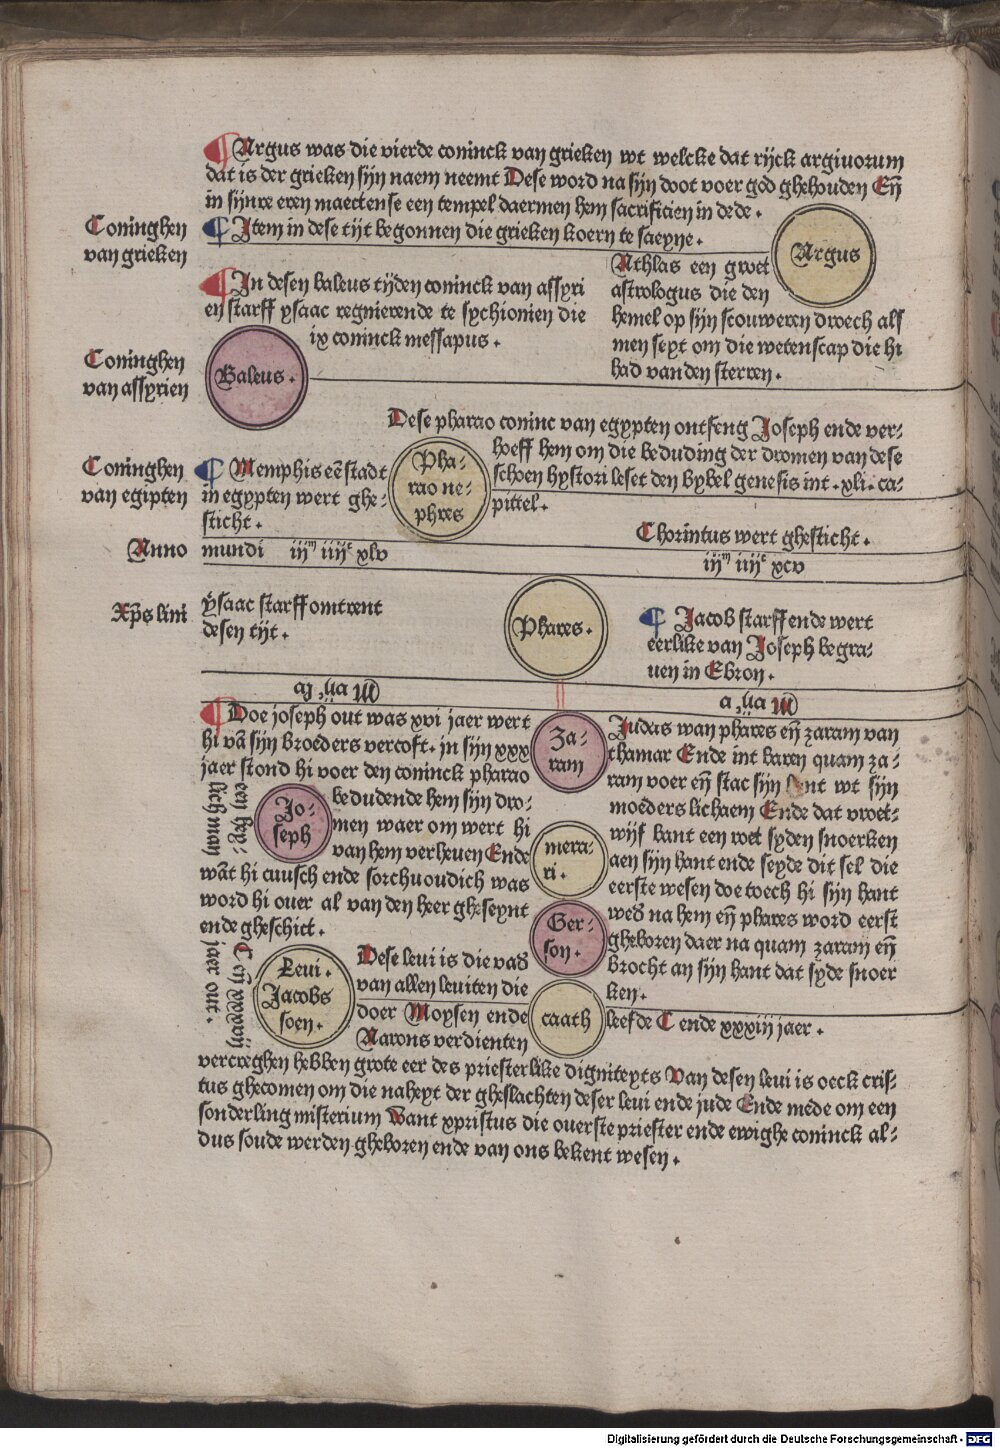 Argus was die vierde coninck van grieken wt welcke dat rijck argiuorum
dat is der grieken sijn naem neemt Dese word na sijn doot voer god ghehouden Eñ
in sijnre eren maectense een tempel daermen hem sacrificien in dede.
Coninghen
van grieken
Item in dese tijt begonnen die grieken koern te saeyne.
Argus
Athlas een groet
astrologus die den
hemel op sijn scouweren droech als
men seyt om die wetenscap die hi
had van den sterren.
In desen baleus tijden coninck van assyri
en starff ysaac regnierende te sychionien die
ix coninck messapus.
Coninghen
van assyrien
Baleus.
Dese pharao coninc van egypten ontfeng Joseph ende ver-
hoeff hem om die beduding der dromen van dese
schoen hystori leset den bybel genesis int .xli. ca-
pittel.
Coninghen
van egipten
Memphis eē stadt
in egypten wert ghe-
sticht.
Pha-
rao ne-
phres
Chorintus wert ghesticht.
Anno mundi iijᵐ iiijᶜ xlv
iijᵐ iiijᶜ xcv
Xp̄s lini
ysaac starff omtrent
desen tijt.
Phares.
Jacob starff ende wert
eerlike van Joseph begra-
uen in Ebron.
Doe joseph out was xvi jaer wert
hi vā sijn broeders vercoft. in sijn xxx
jaer stond hi voer den coninck pharao
bedudende hem sijn dro-
men waer om wert hi
van hem verheuen Ende
wāt hi cuusch ende sorchuoudich was
word hi ouer al van den heer gheseynt
ende gheschict.
Jo-
seph
Za-
ram
mera-
ri.
Ger-
son.
caath
Judas wan phares eñ zaram van
thamar Ende int baren quam za-
ram voer eñ stac sijn hant wt sijn
moeders lichaem Ende dat vroet-
wijf bant een roet syden snoerken
aen sijn hant ende seyde dit sel die
eerste wesen doe toech hi sijn hant
weď na hem eñ phares word eerst
gheboren daer na quam zaram eñ
brocht an sijn hant dat syde snoer
ken.
leefde C ende xxxiij jaer.
Leui.
Jacobs
soen.
jaer out.
Dese leui is die vaď
van allen leuiten die
doer Moysen ende
Aarons verdienten
vercreghen hebben grote eer des priesterlike digniteyts Van desen leui is oeck cris-
tus ghecomen om die naheyt der gheslachten deser leui ende jude Ende mede om een
sonderling misterium Want xpristus die ouerste priester ende ewighe coninck al-
dus soude werden gheboren ende van ons bekent wesen.
Digitalisierung gefördert durch die Deutsche Forschungsgemeinschaft - DFG